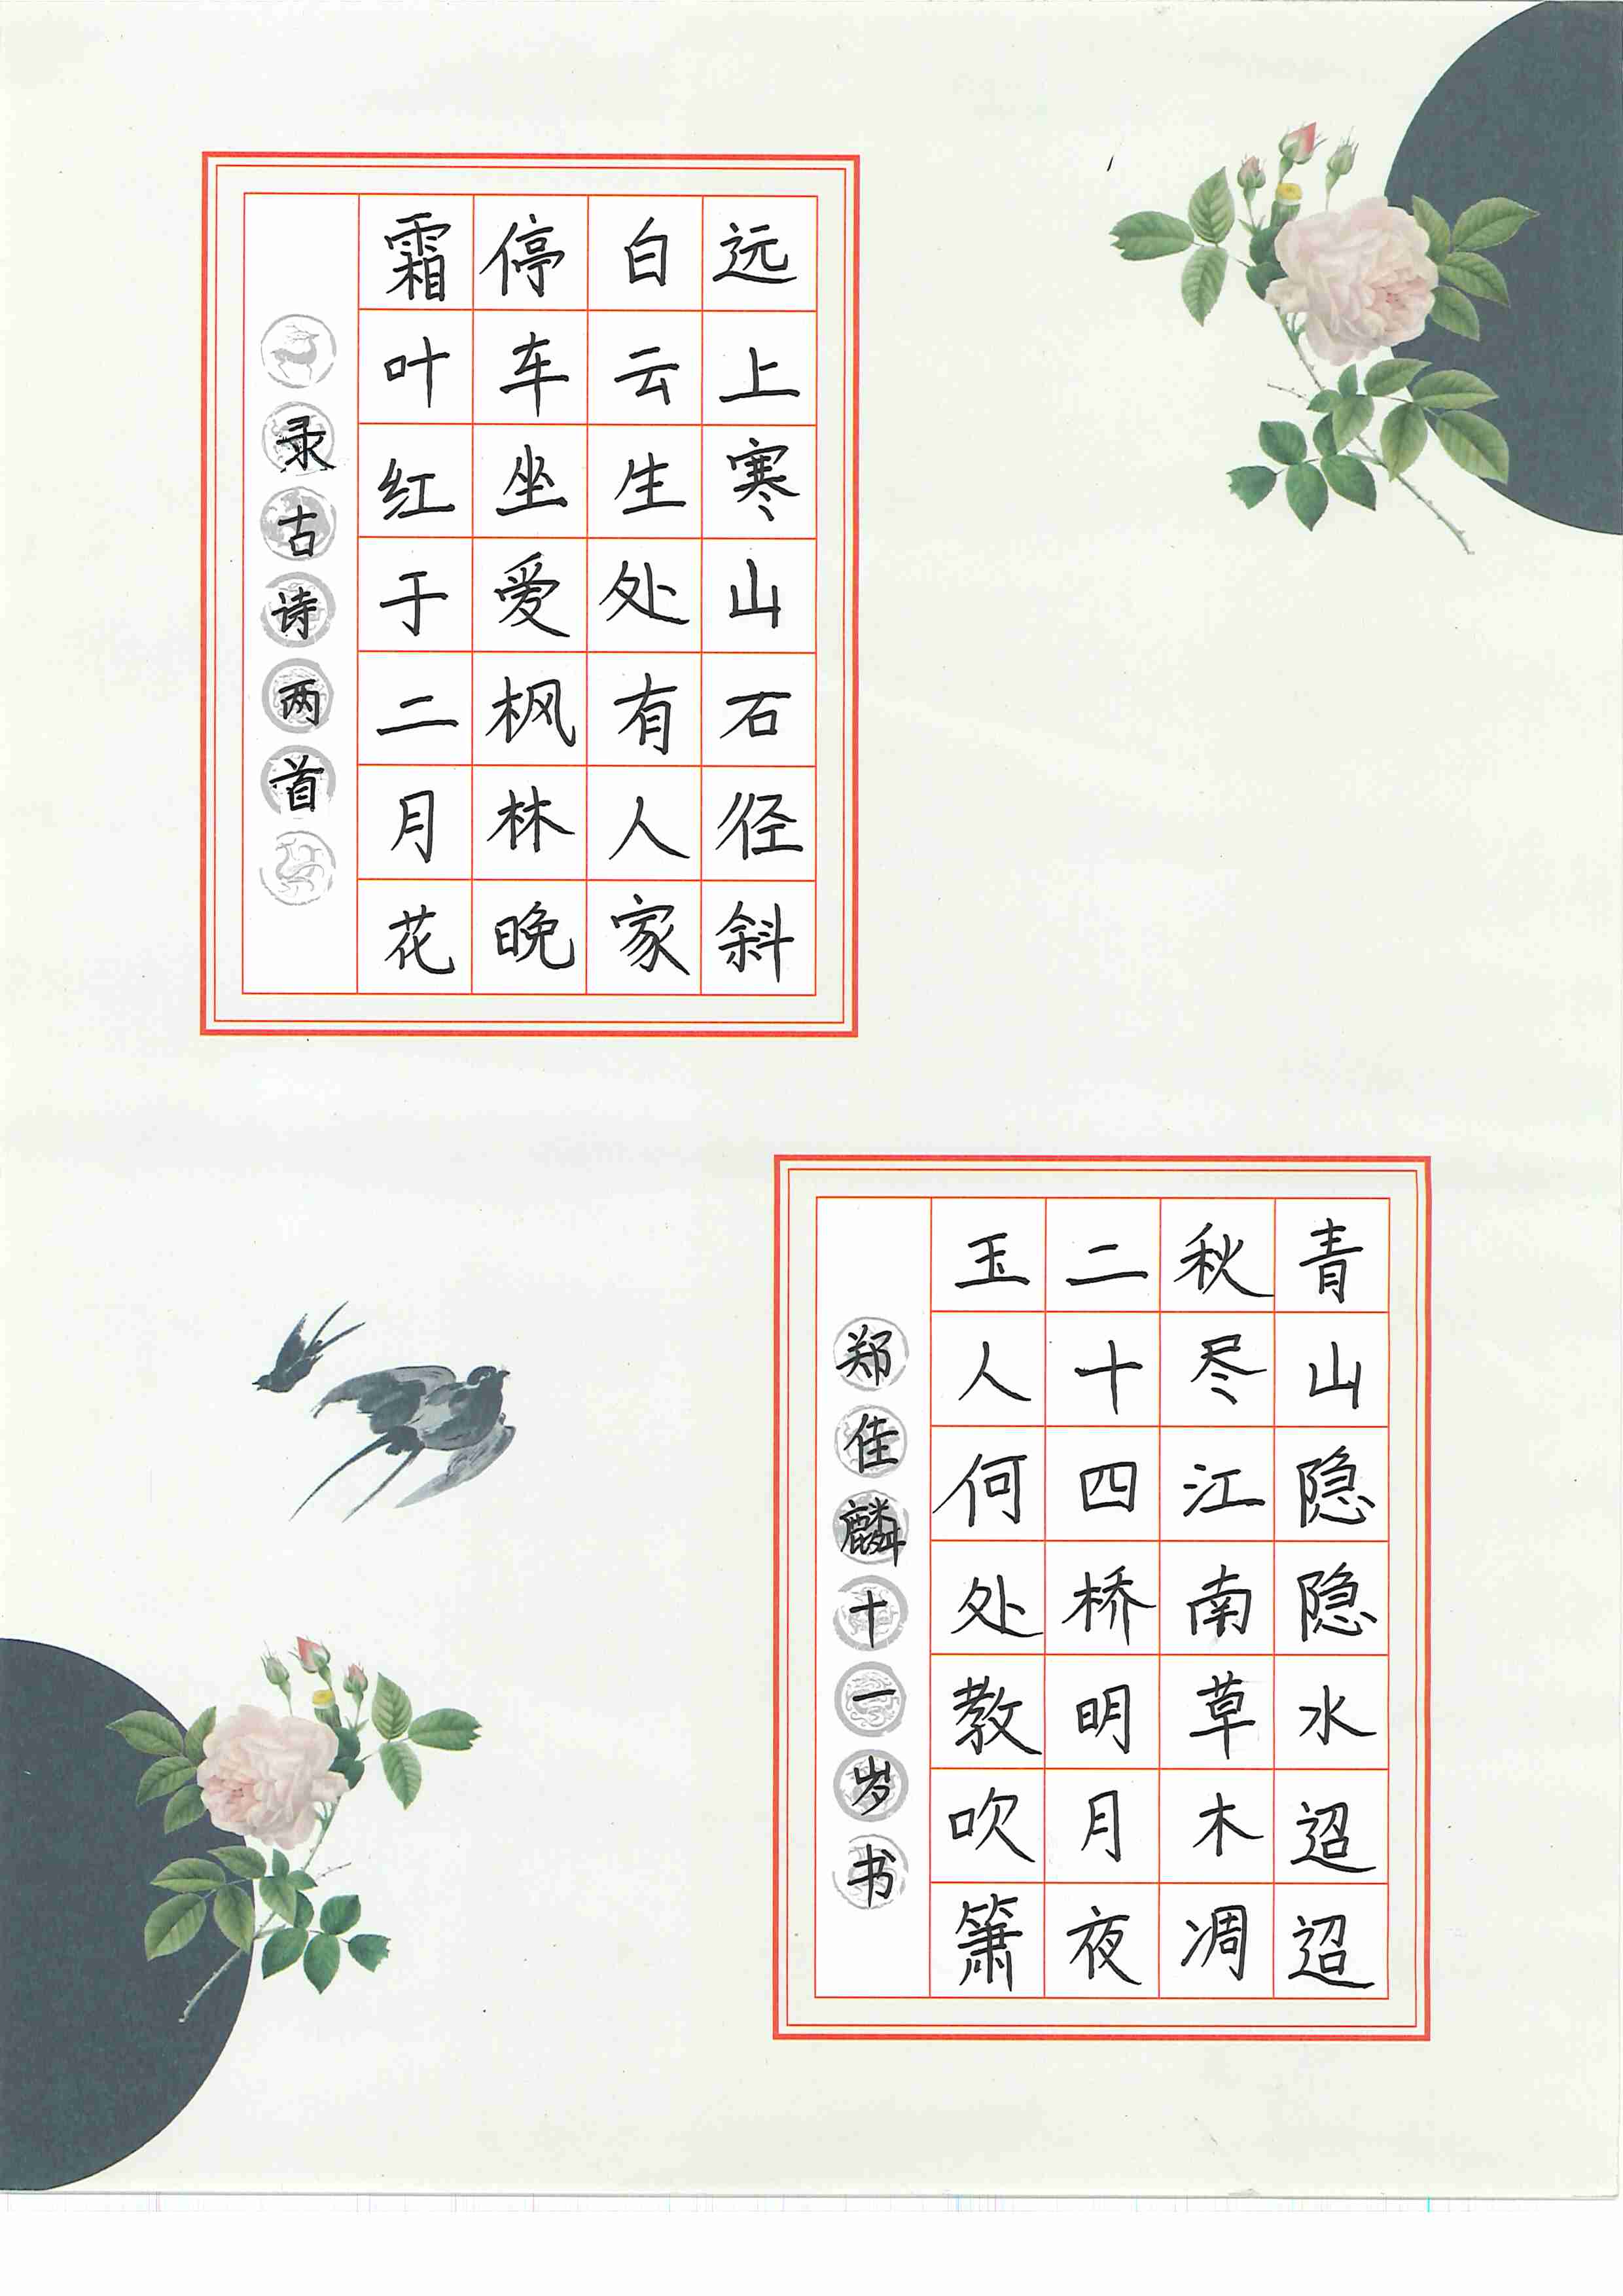 远上寒山石径斜
白云生处有人家
停车坐爱枫林晚
霜叶红于二月花
录古诗两首
青山隐隐水迢迢
秋尽江南草木凋
二十四桥明月夜
玉人何处教吹箫
郑佳麟十一岁书